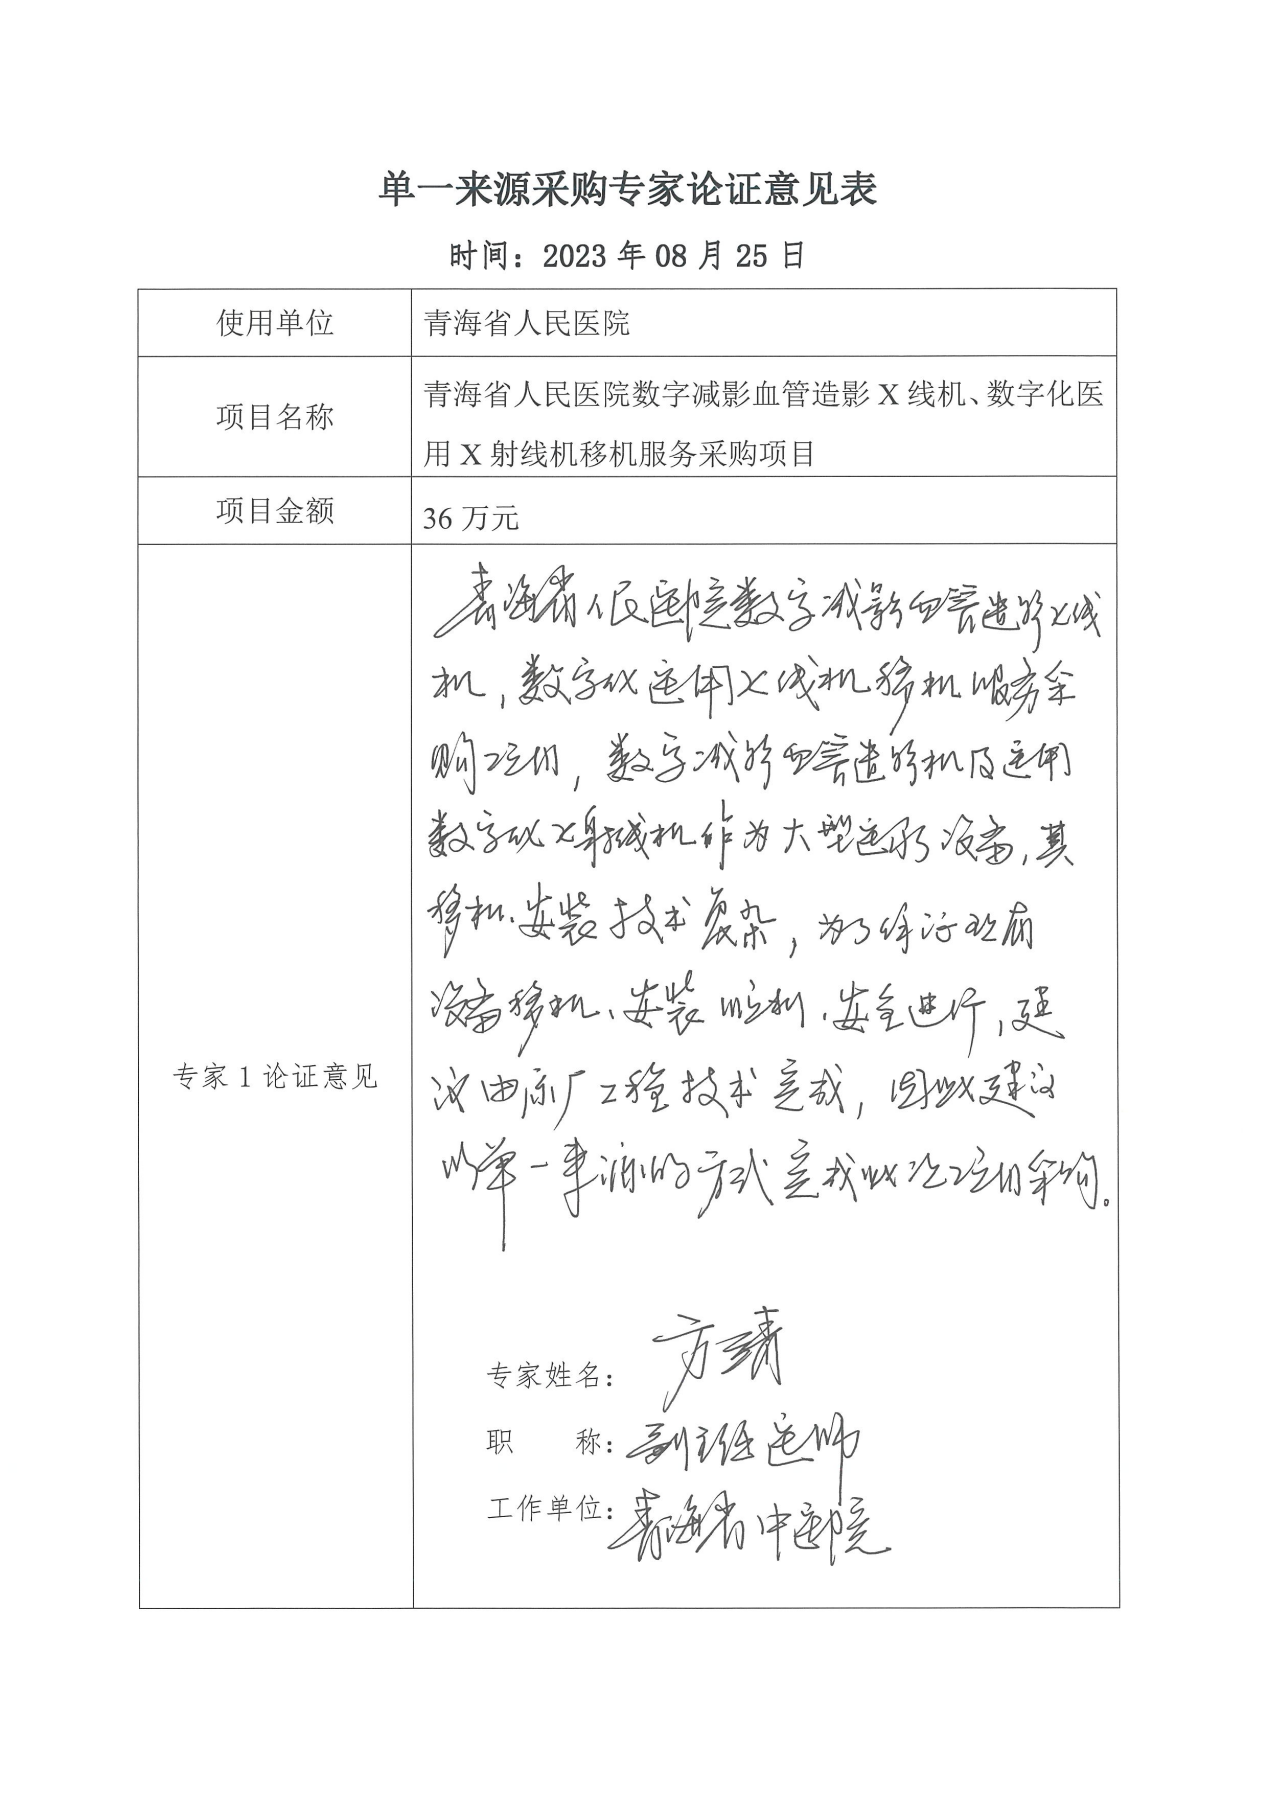 单一来源采购专家论证意见表
时间：2023 年 08 月 25 日
使用单位
青海省人民医院
项目名称
青海省人民医院数字减影血管造影 X 线机、数字化医
用 X 射线机移机服务采购项目
项目金额
36 万元
专家 1 论证意见
青海省人民医院数字减影血管造影X线
机，数字化医用X线机移机服务采
购项目，数字减影血管造影机及医用
数字化X射线机作为大型医疗设备，其
移机、安装技术复杂，为了保证现有
设备移机、安装顺利、安全进行，建
议由原厂工程技术完成，因此建议
以单一来源的方式完成此次项目采购。
专家姓名：方靖
职 称：副主任医师
工作单位：青海省中医院